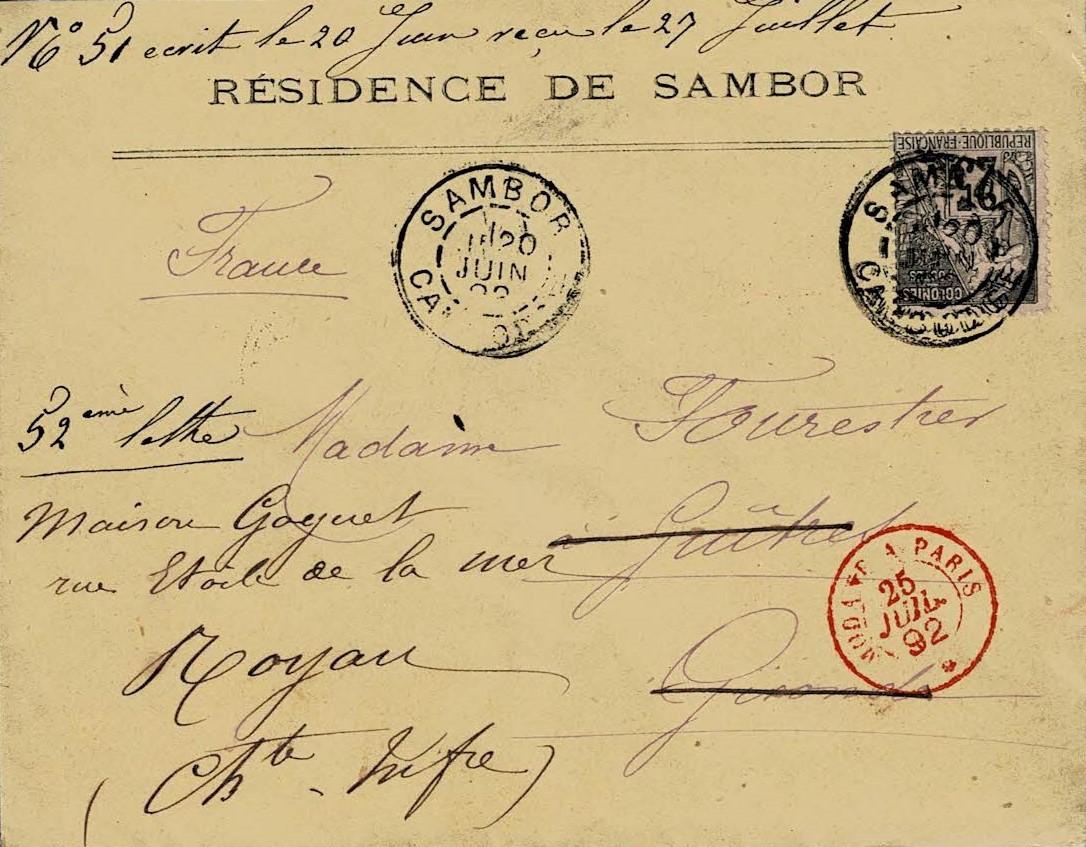 No 51 ecrit le 20 Juin reçu le 27 Juillet
RÉSIDENCE DE SAMBOR
REPUBLIQUE FRANÇAISE
COLONIES
SAMBOR
20
JUIN
SAMBOR
20
JUIN
France
52ème lettre
Madame Fourestier
Maison Goguet
à Guîtres
rue Etoile de la mer
MODANE A PARIS
25
JUIL
92
Royan
Gironde
(Chte Infre)